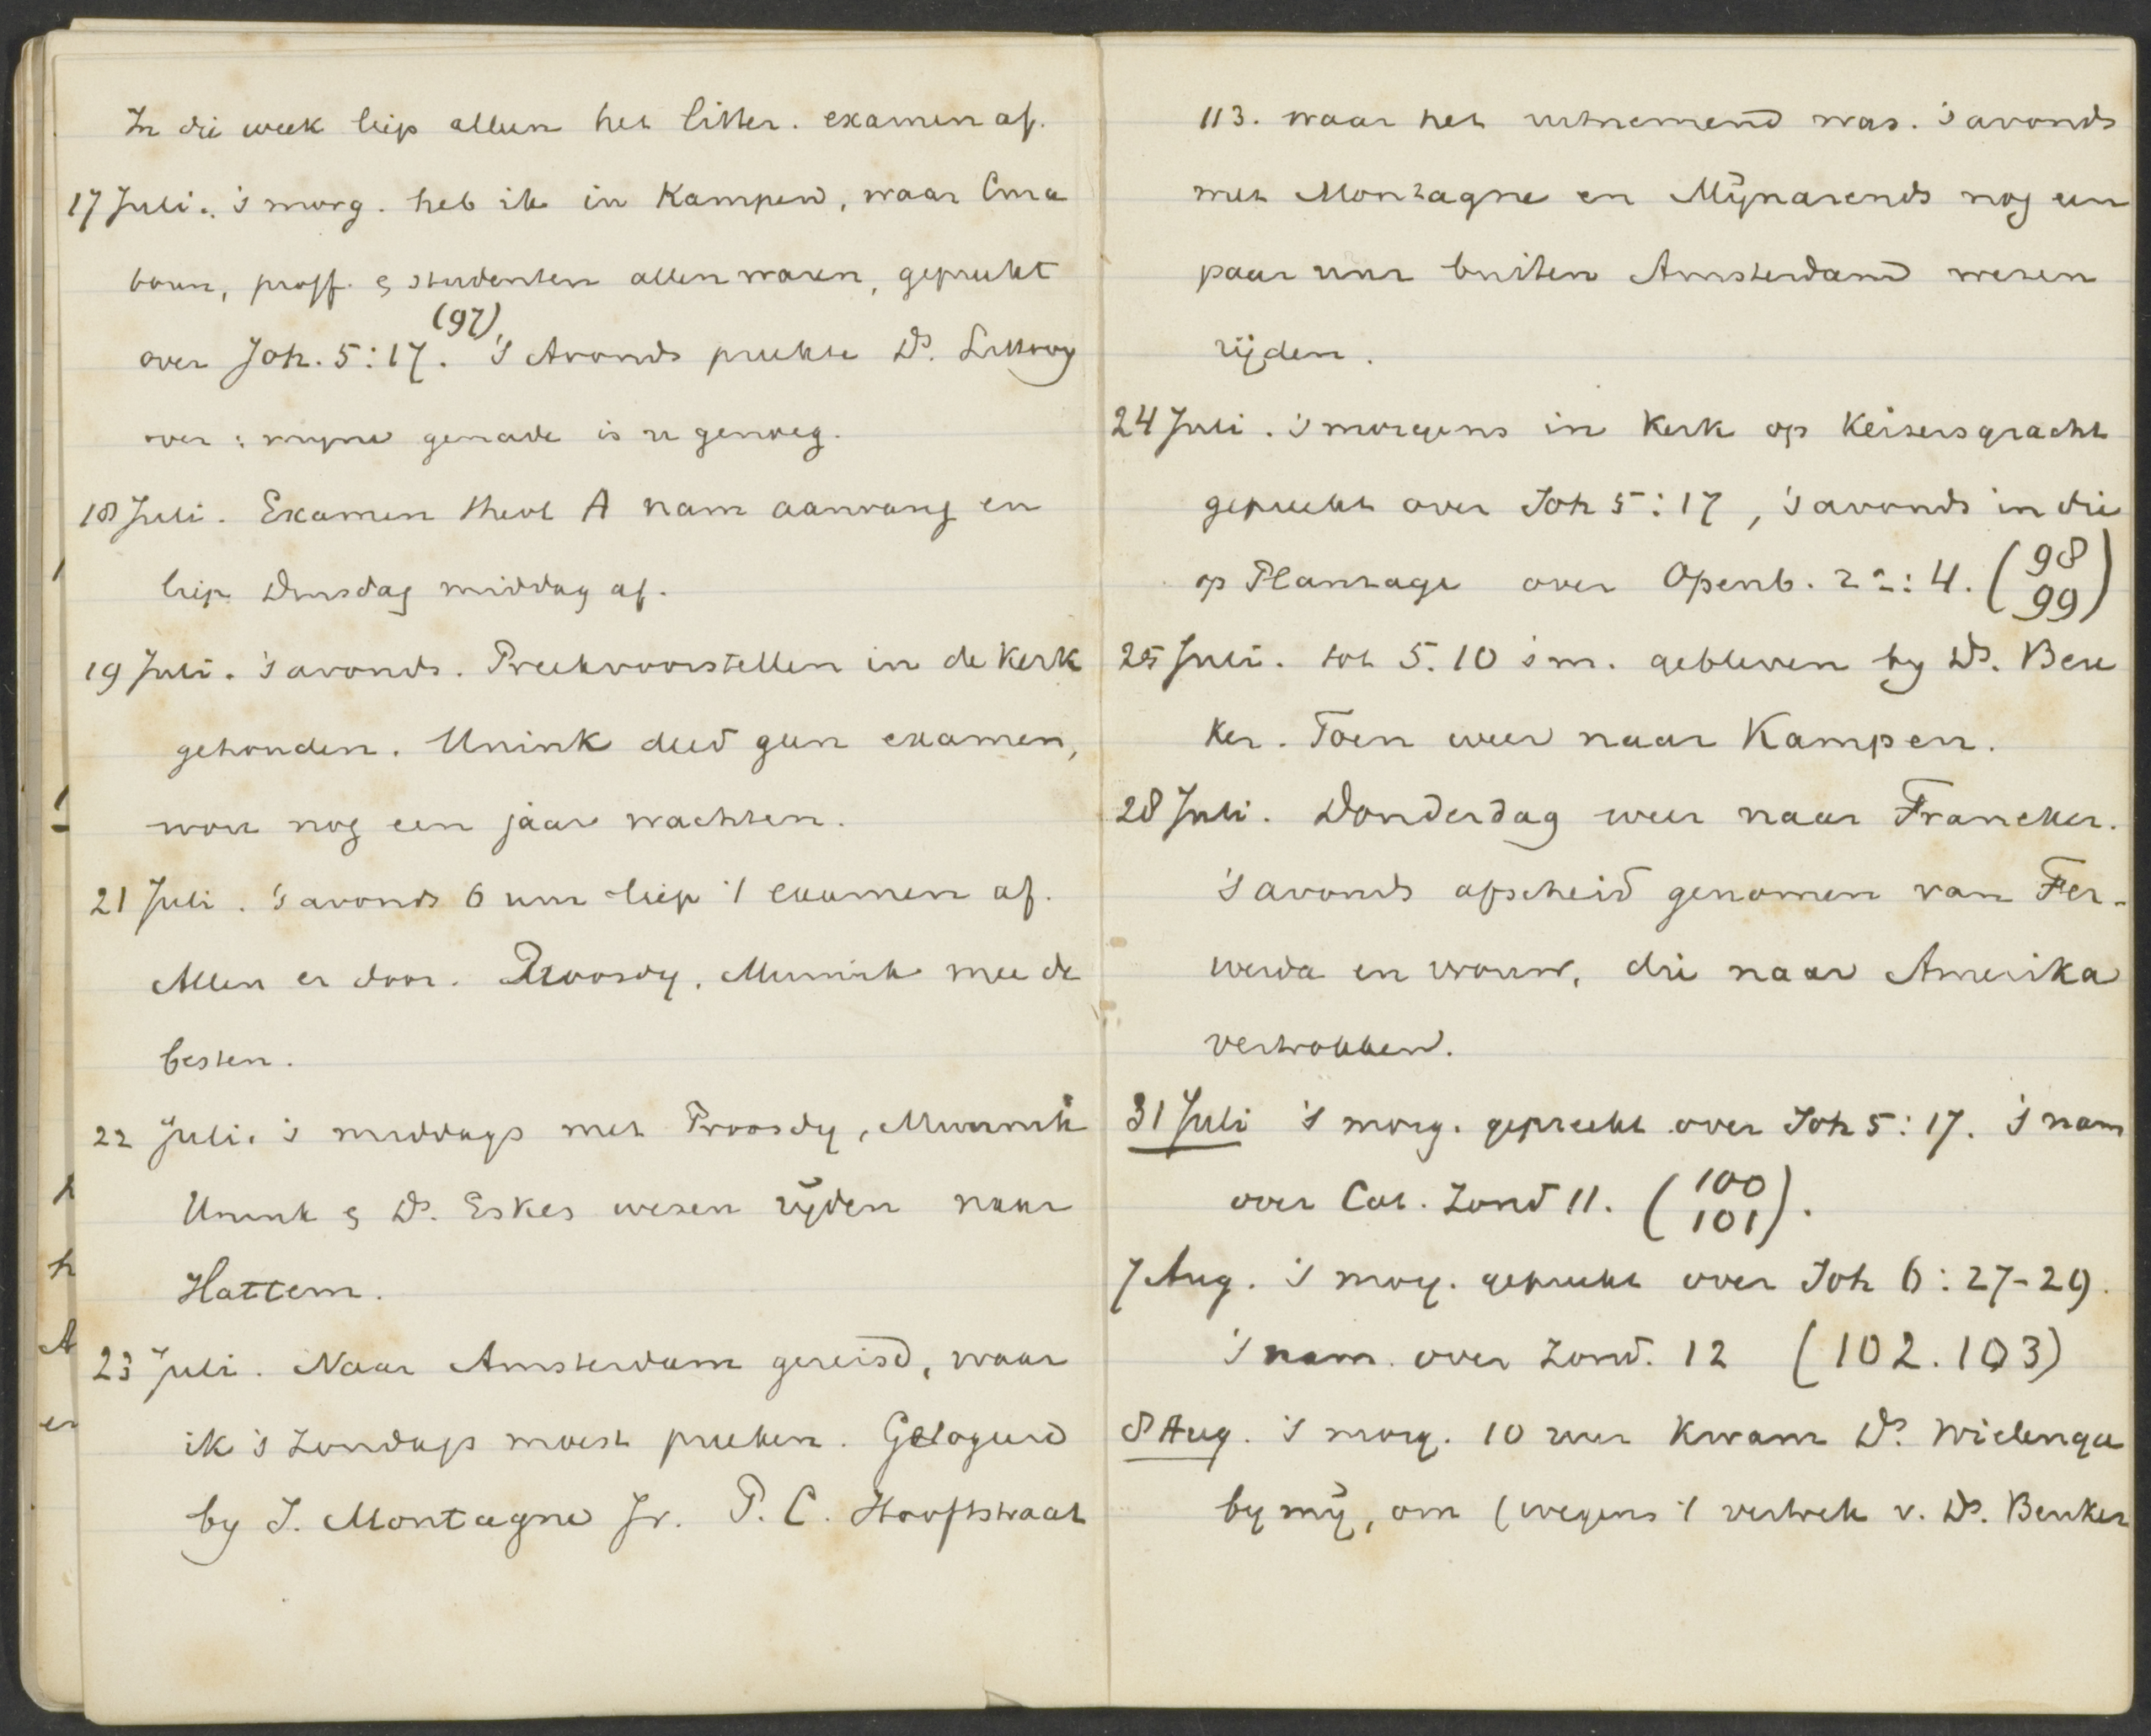 In die week liep alleen het litter. examen af.
17 Juli. 's morg. heb ik in Kampen, waar Cura
toren, proff. & studenten allen waren, gepreekt
over Joh. 5:17. (97) 's Avonds preekte Ds.
over: mijne genade is u genoeg.
18 Juli. Examen theol A nam aanvang en
liep Dinsdag middag af.
19 Juli. 's avonds. Preekvoorstellen in de Kerk
gehouden. Unink deed geen examen,
wou nog een jaar wachten.
21 Juli. 's avonds 6 uur liep 't examen af.
Allen er door. Proosdy, Munnik mee de
besten.
22 Juli. 's middags met Proosdy, Munnik
Unink & Ds. Eskes wesen rijden naar
Hattem.
23 Juli. Naar Amsterdam gereisd, waar
ik 's Zondags moest preeken. Gelogeerd
by J. Montagne Jr. P. C. Hooftstraat
113. waar het uitnemend was. 's avonds
met Montagne en Mijnarends nog een
paar uur buiten Amsterdam wesen
rijden.
24 Juli. 's morgens in Kerk op Keisersgracht
gepreekt over Joh 5:17, 's avonds in die
op Plantage over Openb. 22:4. (98
99)
25 Juli. tot 5.10 's m. gebleven by Ds. Beu
ker. Toen weer naar Kampen.
28 Juli. Donderdag weer naar Franeker.
's avonds afscheid genomen van Fer-
werda en vrouw, die naar Amerika
vertrokken.
31 Juli 's morg. gepreekt over Joh 5:17. 's nam
over Cat. Zond 11. (100
101).
7 Aug. 's morg. gepreekt over Joh 6:27-29.
's nam. over Zond. 12 (102.103)
8 Aug. 's morg. 10 uur kwam Ds. Wielenga
by mij, om (wegens 't vertrek v. Ds. Beuker